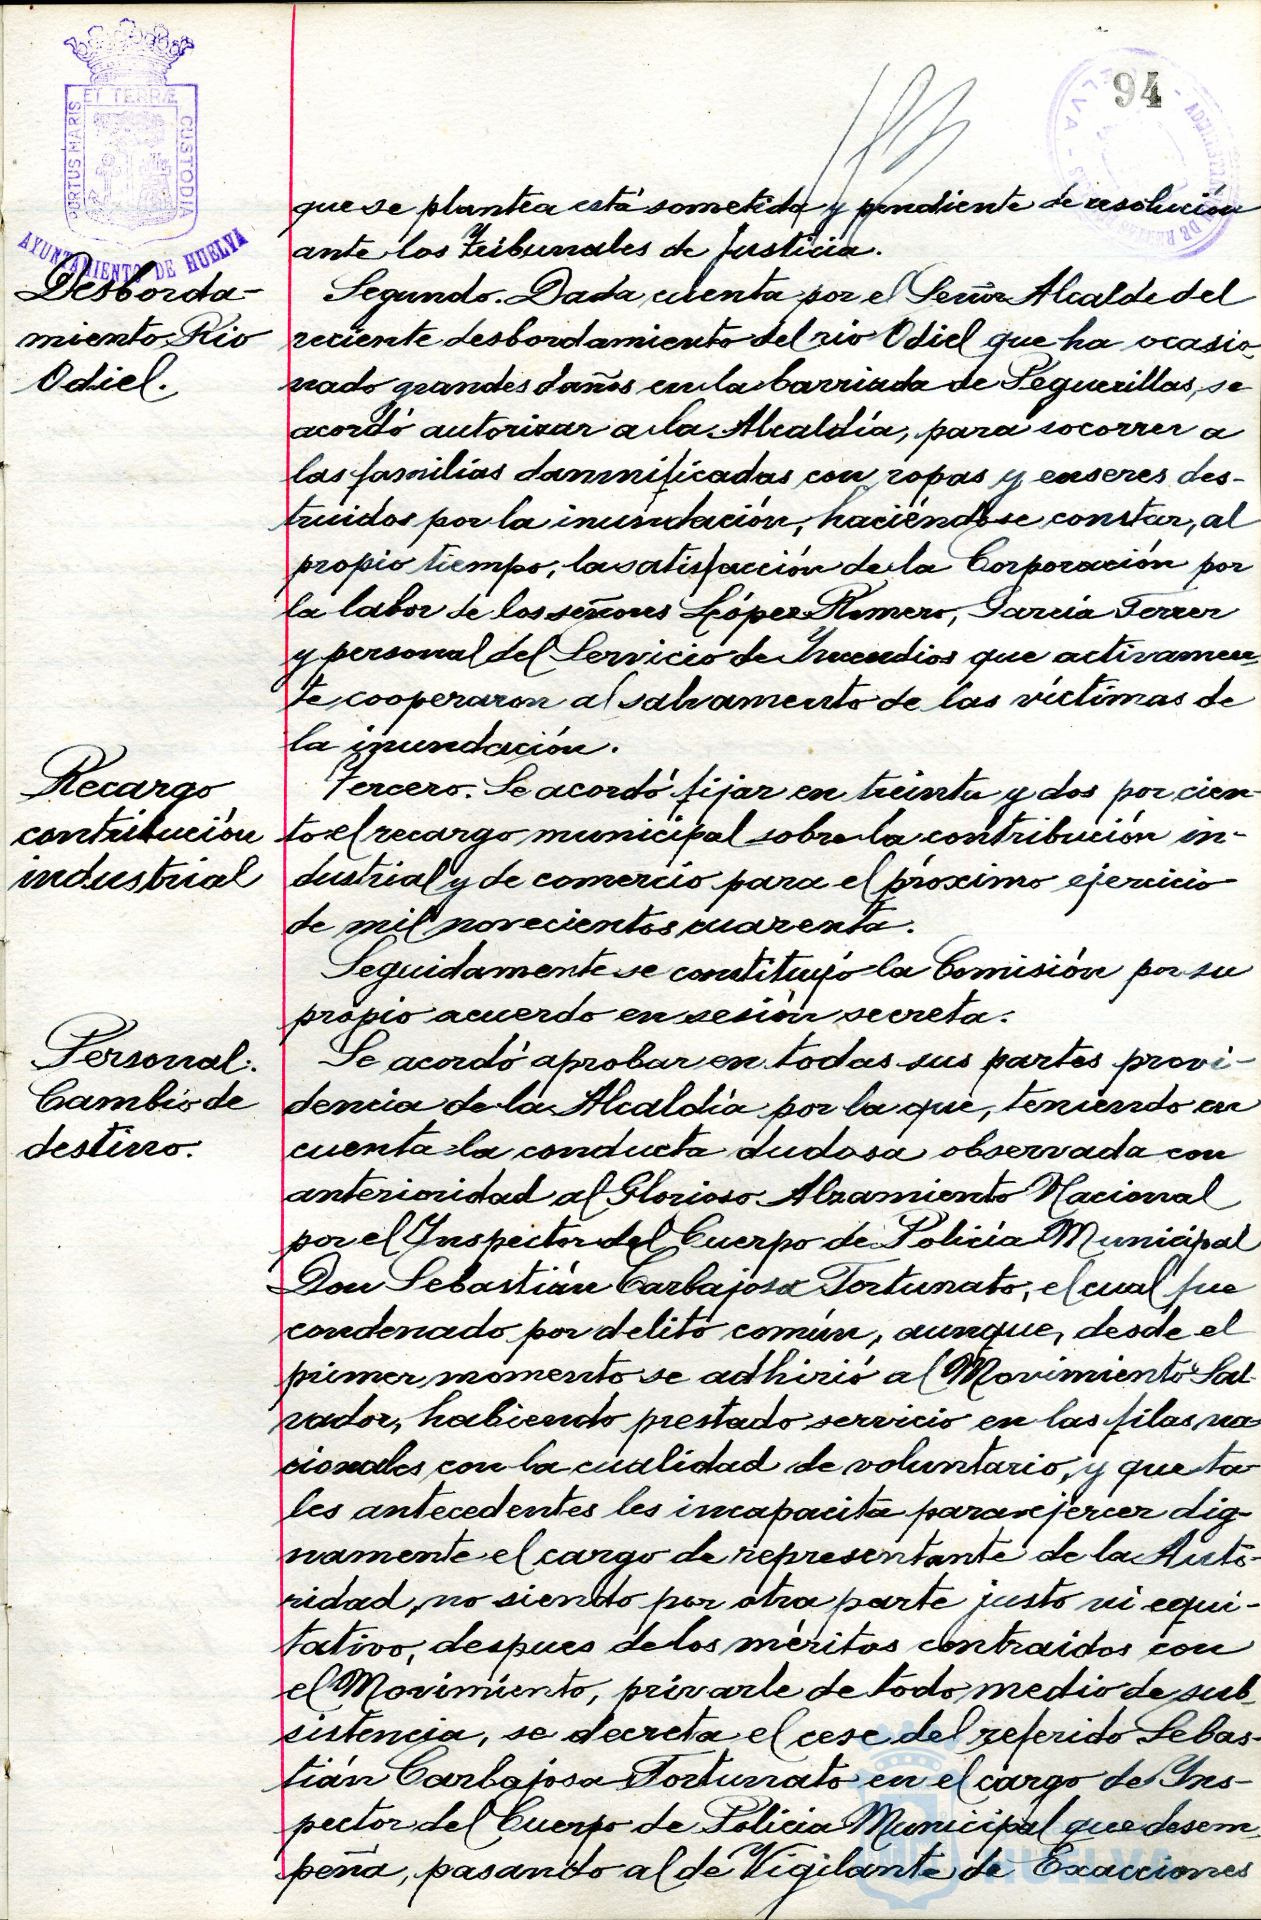 94
PORTUS MARIS ET TERRÆ CUSTODIA
AYUNTAMIENTO DE HUELVA
que se plantea está sometida y pendiente de resolución
ante los Tribunales de Justicia.
Desborda-
miento Rio
Odiel.
Segundo. Dada cuenta por el Señor Alcalde del
reciente desbordamiento del rio Odiel que ha ocasio-
nado grandes daños en la barriada de Peguerillas, se
acordó autorizar a la Alcaldía, para socorrer a
las familias damnificadas con ropas y enseres des-
truidos por la inundación, haciéndose constar, al
propio tiempo, la satisfacción de la Corporación por
la labor de los señores López Romero, García Ferrer
y personal del Servicio de Incendios que activamen-
te cooperaron al salvamento de las víctimas de
la inundación.
Recargo
contribución
industrial
Tercero. Se acordó fijar en treinta y dos por cien-
to el recargo municipal sobre la contribución in-
dustrial y de comercio para el próximo ejercicio
de mil novecientos cuarenta.
Seguidamente se constituyó la Comisión por su
propio acuerdo en sesión secreta.
Personal.
Cambio de
destino.
Se acordó aprobar en todas sus partes provi-
dencia de la Alcaldía por la que, teniendo en
cuenta la conducta dudosa observada con
anterioridad al Glorioso Alzamiento Nacional
por el Inspector del Cuerpo de Policía Municipal
Don Sebastián Carbajosa Fortunato, el cual fue
condenado por delito común, aunque, desde el
primer momento se adhirió al Movimiento Sal-
vador, habiendo prestado servicio en las filas na-
cionales con la cualidad de voluntario, y que ta-
les antecedentes les incapacita para ejercer dig-
namente el cargo de representante de la Auto-
ridad, no siendo por otra parte justo ni equi-
tativo, despues de los méritos contraidos con
el Movimiento, privarle de todo medio de sub-
sistencia, se decreta el cese del referido Sebas-
tián Carbajosa Fortunato en el cargo de Ins-
pector del Cuerpo de Policia Municipal que desem-
peña, pasando al de Vigilante de Exacciones
HUELVA